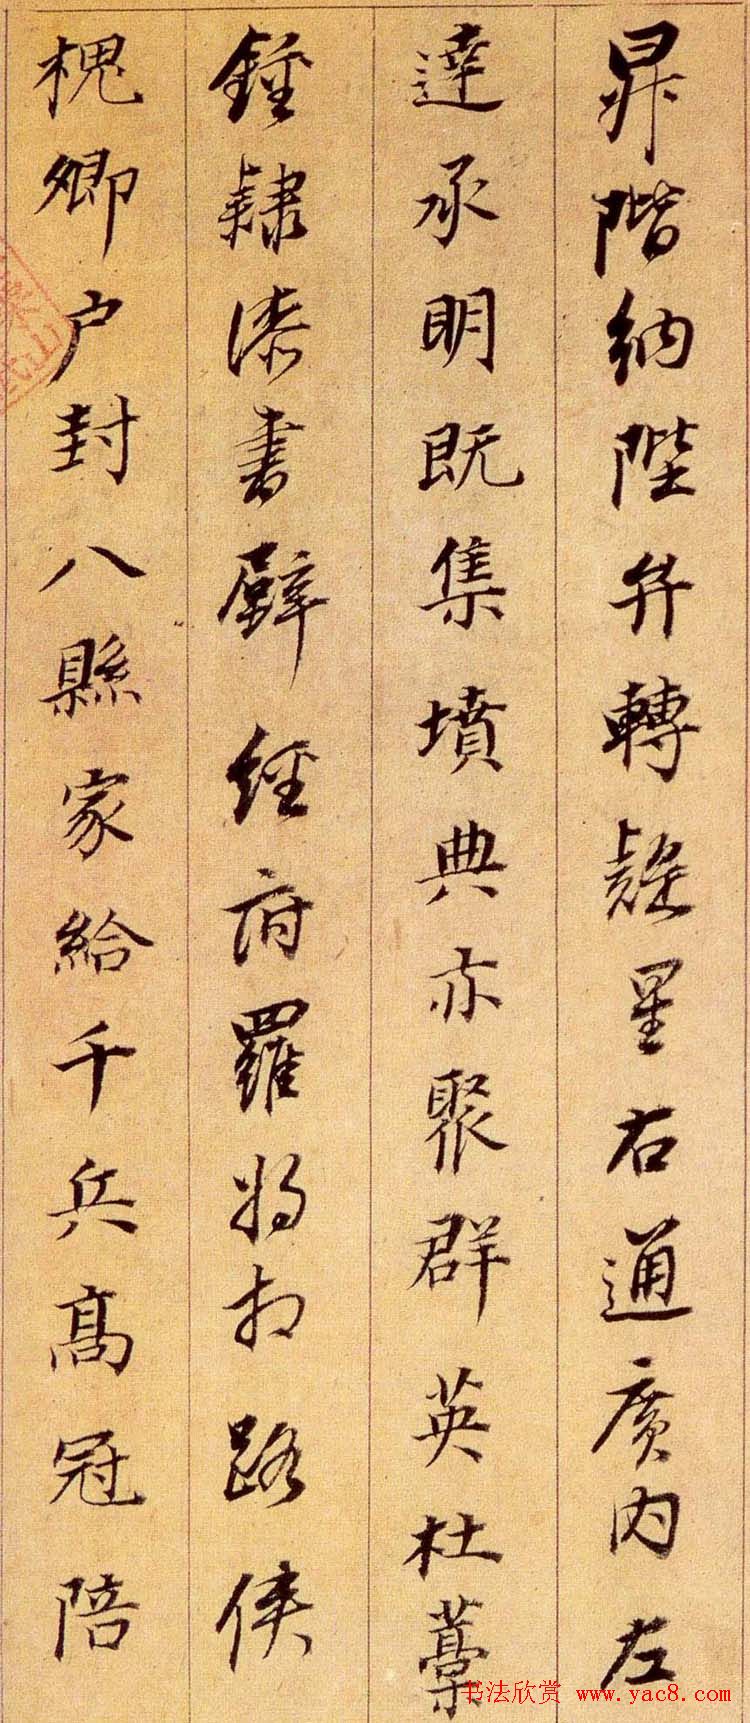 昇階納陛弁轉疑星右通廣内左
達承明既集墳典亦聚群英杜藁
鍾隸漆書壁經府羅将相路俠
槐卿户封八縣家給千兵髙冠陪
书法欣赏 www.yac8.com